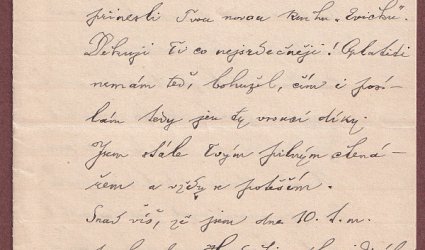 přinesli Tvou novou knihu „Zvičku“.
Děkuji Ti co nejsrdečněji! Oplatiti
nemám teď, bohužel, čím i posí-
lám tedy jen ty vroucí díky.
Jsem stále Tvým pilným čtená-
řem a vždy s potěším.
Snad víš, že jsem dne 10. t. m.